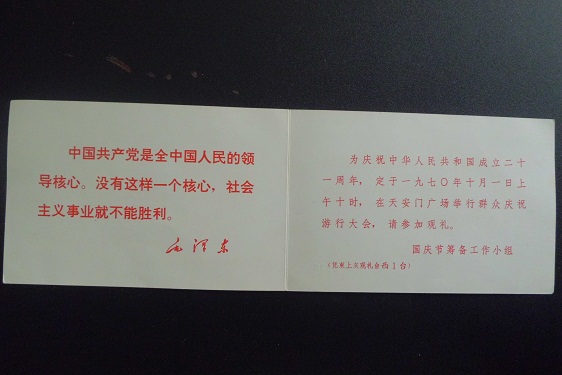 中国共产党是全中国人民的领
导核心。没有这样一个核心，社会
主义事业就不能胜利。
毛泽东
为庆祝中华人民共和国成立二十
一周年，定于一九七〇年十月一日上
午十时，在天安门广场举行群众庆祝
游行大会，请参加观礼。
国庆节筹备工作小组
（凭柬上东观礼台西1台）